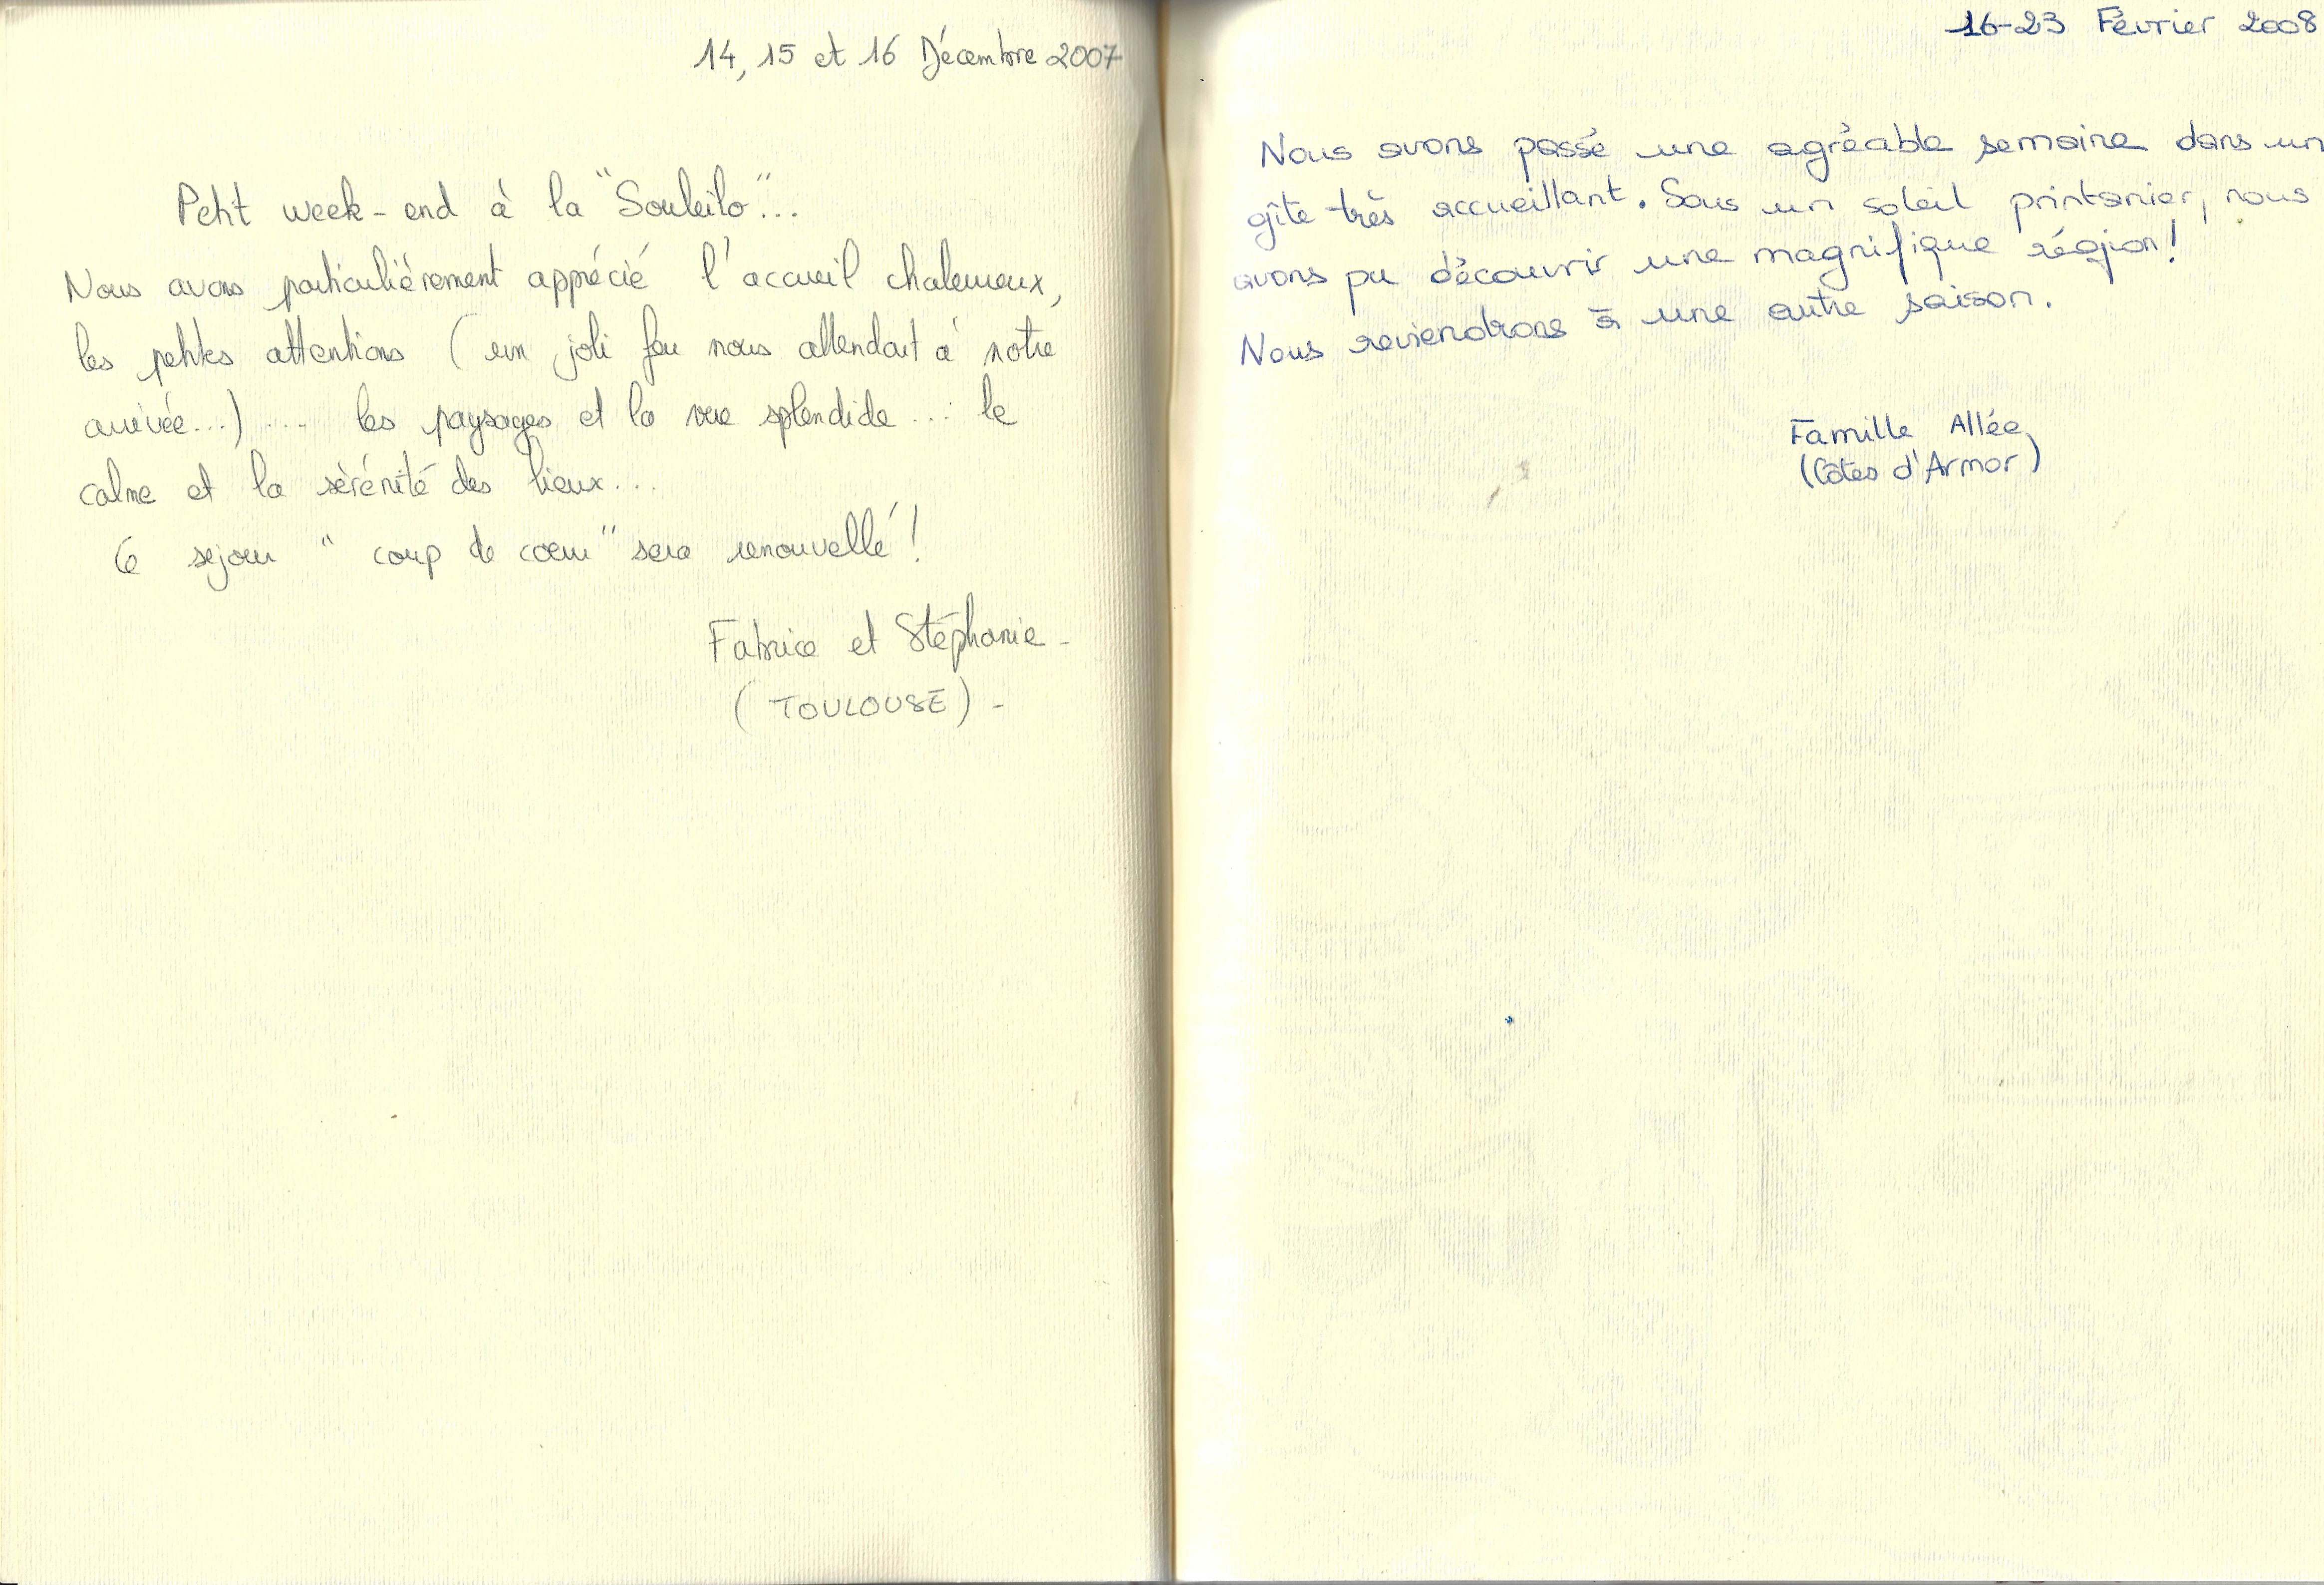 14, 15 et 16 Décembre 2007
Petit week-end à la "Souleilo"...
Nous avons particulièrement apprécié l'accueil chaleureux,
les petites attentions (un joli feu nous attendait à notre
arrivée...) .... les paysages et la vue splendide... le
calme et la sérénité des lieux...
Ce sejour "coup de coeur" sera renouvellé !
Fabrice et Stéphanie -
(TOULOUSE) -
16-23 Février 2008
Nous avons passé une agréable semaine dans un
gîte très accueillant. Sous un soleil printanier, nous
avons pu découvrir une magnifique région !
Nous reviendrons à une autre saison.
Famille Allée,
(Côtes d'Armor)